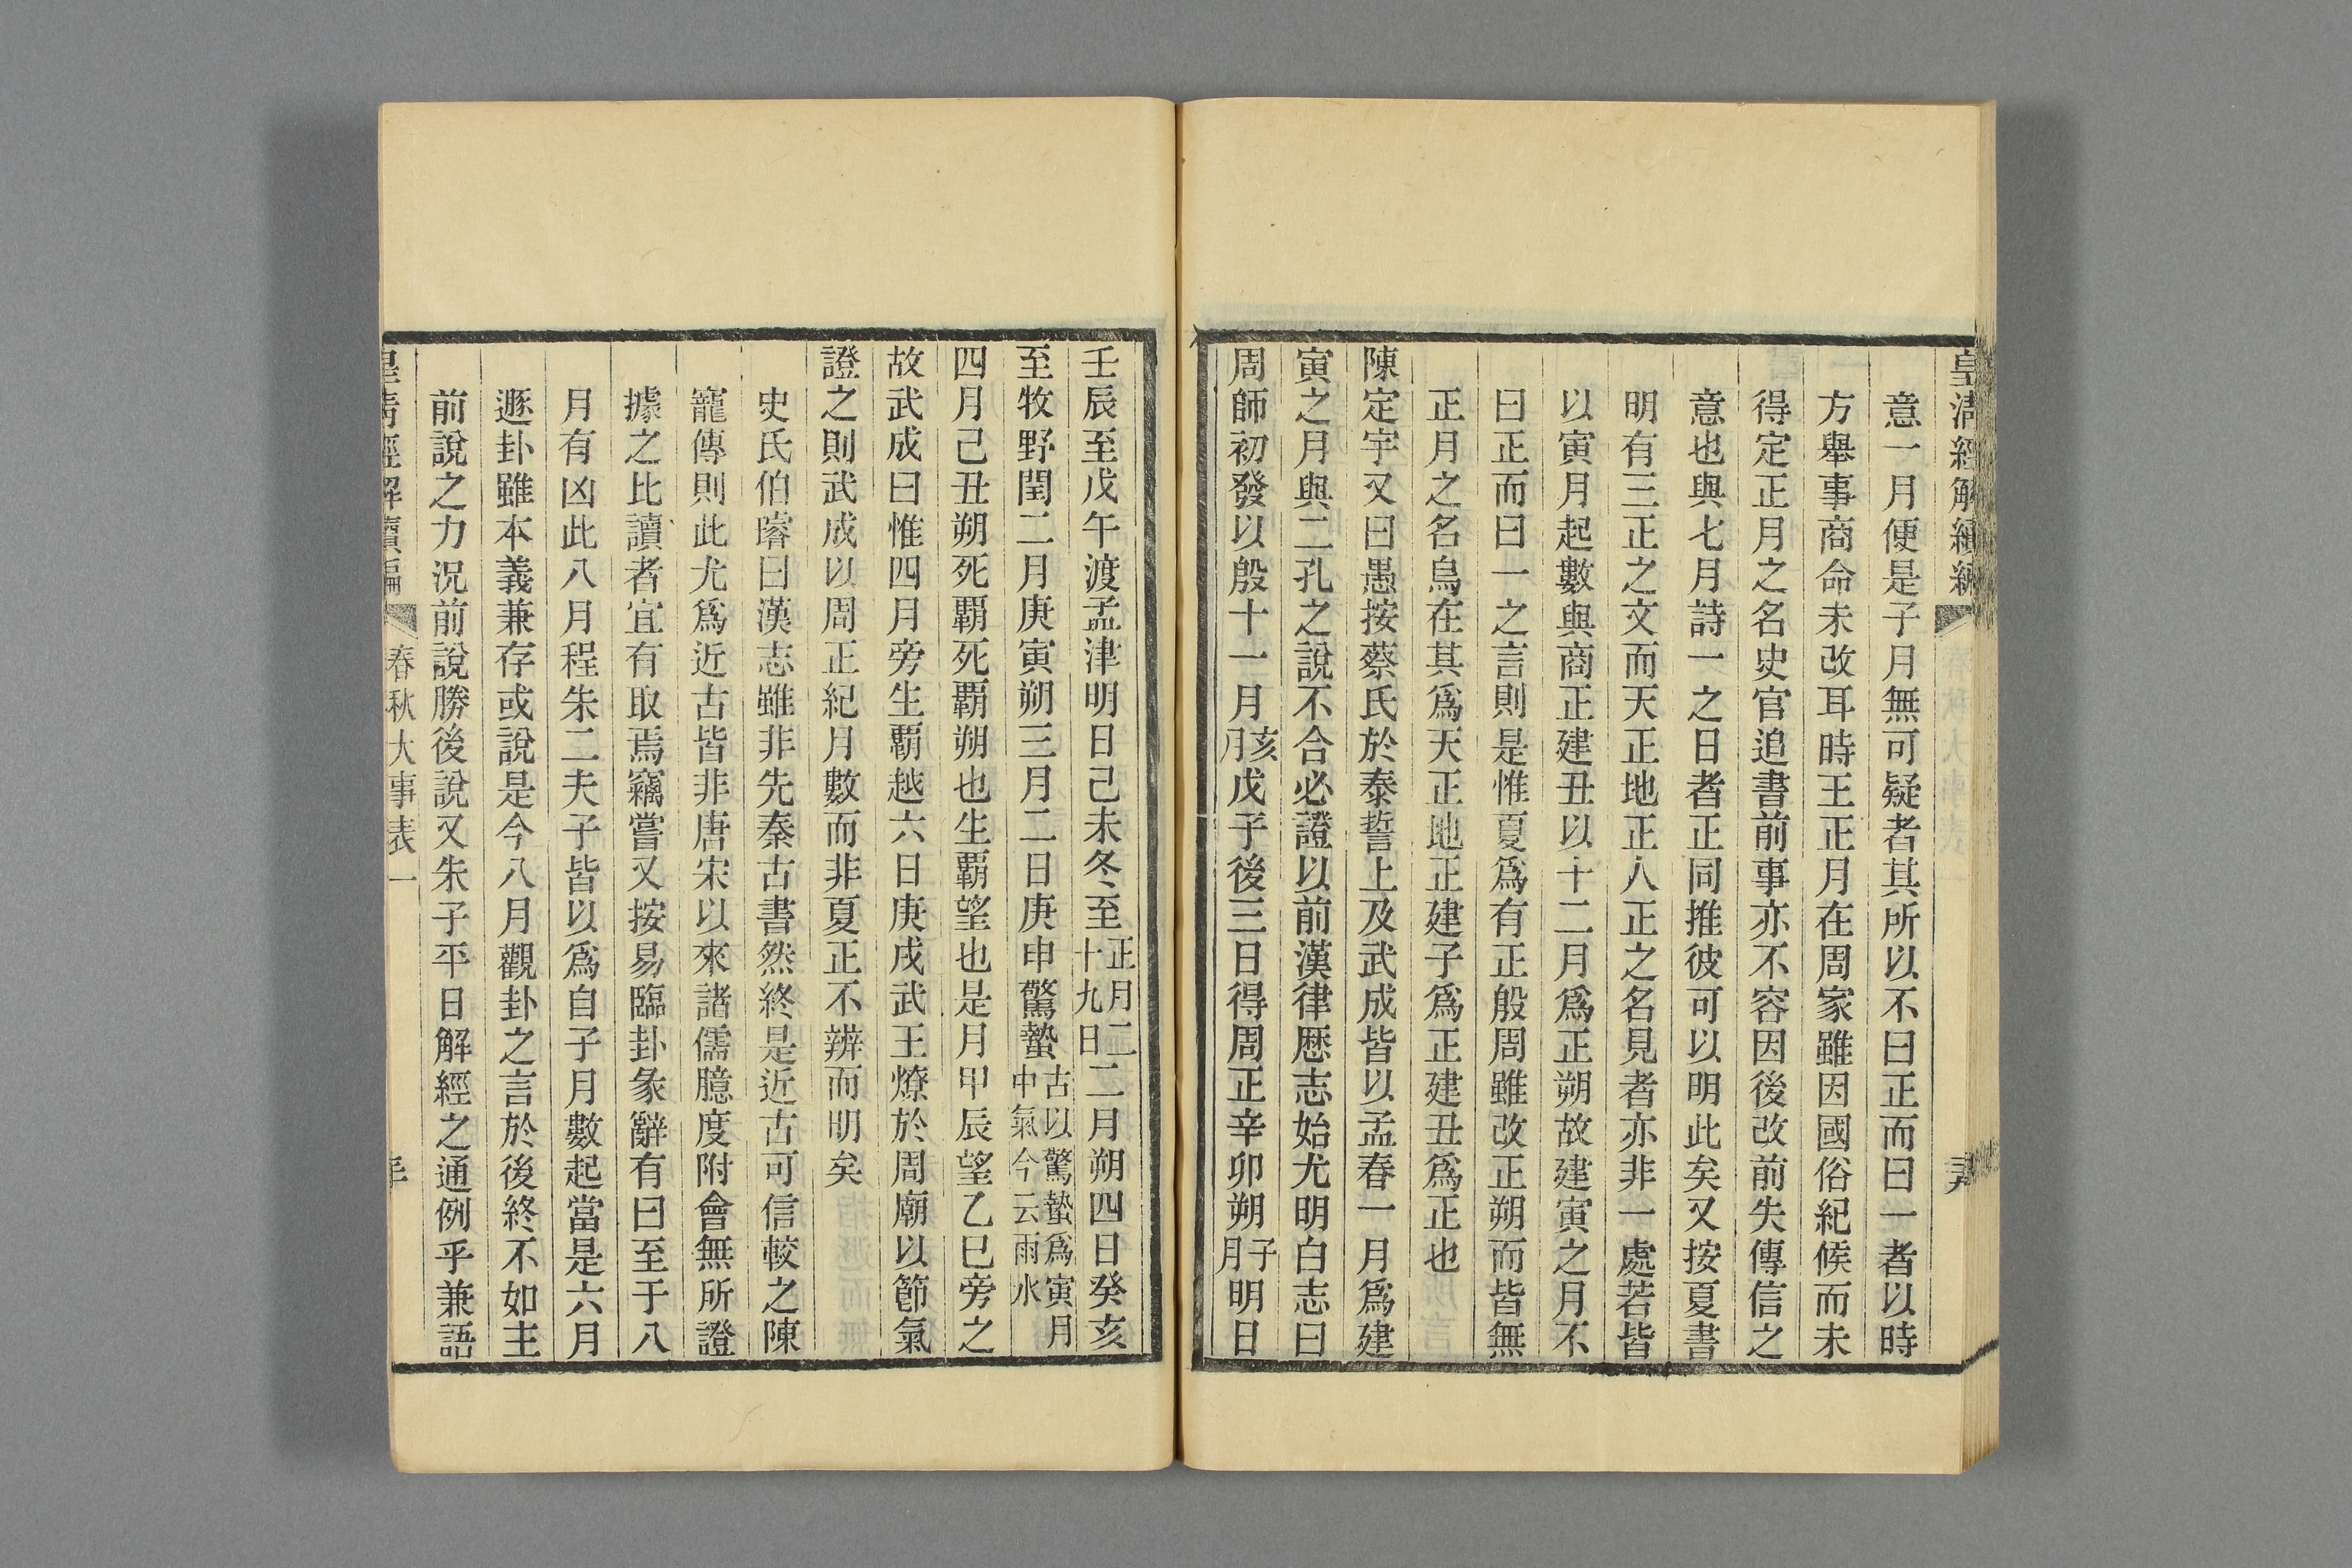 皇清經解續編
意一月便是子月無可疑者其所以不曰正而曰一者以時
方舉事商命未改耳時王正月在周家雖因國俗紀候而未
得定正月之名史官追書前事亦不容因後改前失傳信之
意也與七月詩一之日者正同推彼可以明此矣又按夏書
明有三正之文而天正地正人正之名見者亦非一處若皆
以寅月起數與商正建丑以十二月爲正朔故建寅之月不
曰正而曰一之言則是惟夏爲有正殷周雖改正朔而皆無
正月之名烏在其爲天正地正建子爲正建丑爲正也
陳定宇又曰愚按蔡氏於泰誓上及武成皆以孟春一月爲建
寅之月與二孔之說不合必證以前漢律歷志始尤明白志曰
周師初發以殷十一月亥月戊子後三日得周正辛卯朔子月明日
壬辰至戊午渡孟津明日己未冬至正月二十九日二月朔四日癸亥
至牧野閏二月庚寅朔三月二日庚申驚蟄古以驚蟄爲寅月中氣今云雨水
四月己丑朔死覇死覇朔也生覇望也是月甲辰望乙巳旁之
故武成曰惟四月旁生覇越六日庚戌武王燎於周廟以節氣
證之則武成以周正紀月數而非夏正不辨而明矣
史氏伯璿曰漢志雖非先秦古書然終是近古可信較之陳
寵傳則此尤爲近古皆非唐宋以來諸儒臆度附會無所證
據之比讀者宜有取焉竊嘗又按易臨卦彖辭有曰至于八
月有凶此八月程朱二夫子皆以爲自子月數起當是六月
遯卦雖本義兼存或說是今八月觀卦之言於後終不如主
前說之力況前說勝後說又朱子平日解經之通例乎兼語
皇清經解續編 春秋大事表一